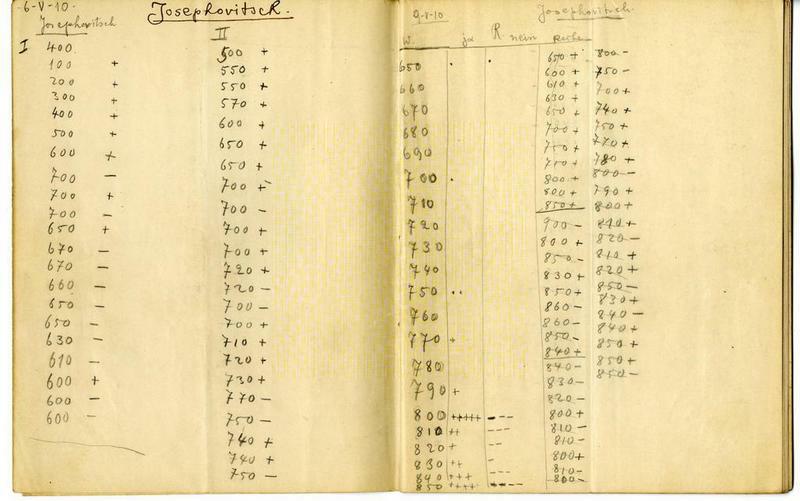 6-V-10.
Josephovitsch.
Josephovitsch
I
400
100 +
200 +
300 +
400 +
500 +
600 +
700 −
700 +
700 −
650 +
670 −
670 −
660 −
650 −
650 −
630 −
610 −
600 +
600 −
600 −
II
500 +
550 +
550 +
570 +
600 +
650 +
650 +
700 +
700 −
700 +
700 +
720 +
720 −
700 −
700 +
710 +
720 +
730 +
770 −
750 −
740 +
740 +
750 −
9-V-10
Josephovitsch.
W. ja R nein Reihe
650 ·
660
670
680
690
700 ·
710
720
730
740
750 ··
760
770 +
780
790 +
800 +++++ − − −
810 ++ − − −
820 + − −
830 ++ − − −
840 +++ − − −
850 ++++ − − −
650 +
600 +
610 +
630 +
650 +
700 +
750 +
750 +
800 +
800 +
850 +
900 −
800 +
850 −
830 +
850 +
860 −
860 −
850 −
840 +
840 −
830 −
820 −
800 +
810 −
810 −
800 +
810 −
800 −
800 −
750 −
700 +
740 +
750 +
770 +
780 +
800 −
790 +
800 +
810 +
820 −
810 +
820 +
850 −
830 +
840 −
840 +
850 +
850 +
850 −